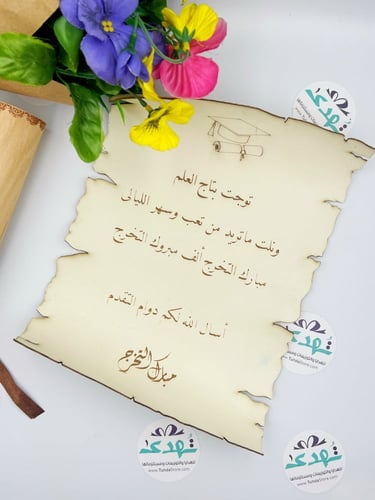 توجت بتاج العلم
ونلت ماتريد من تعب وسهر الليالى
مبارك التخرج ألف مبروك التخرج
أسال الله لكم دوام التقدم
مبارك التخرج
تهدى
للهدايا والتوزيعات ومستلزماتها
www.TuhdaStore.com
تهدى
www.TuhdaStore.com
تهدى
للهدايا والتوزيعات ومستلزماتها
www.TuhdaStore.com
تهدى
للهدايا والتوزيعات ومستلزماتها
www.TuhdaStore.com